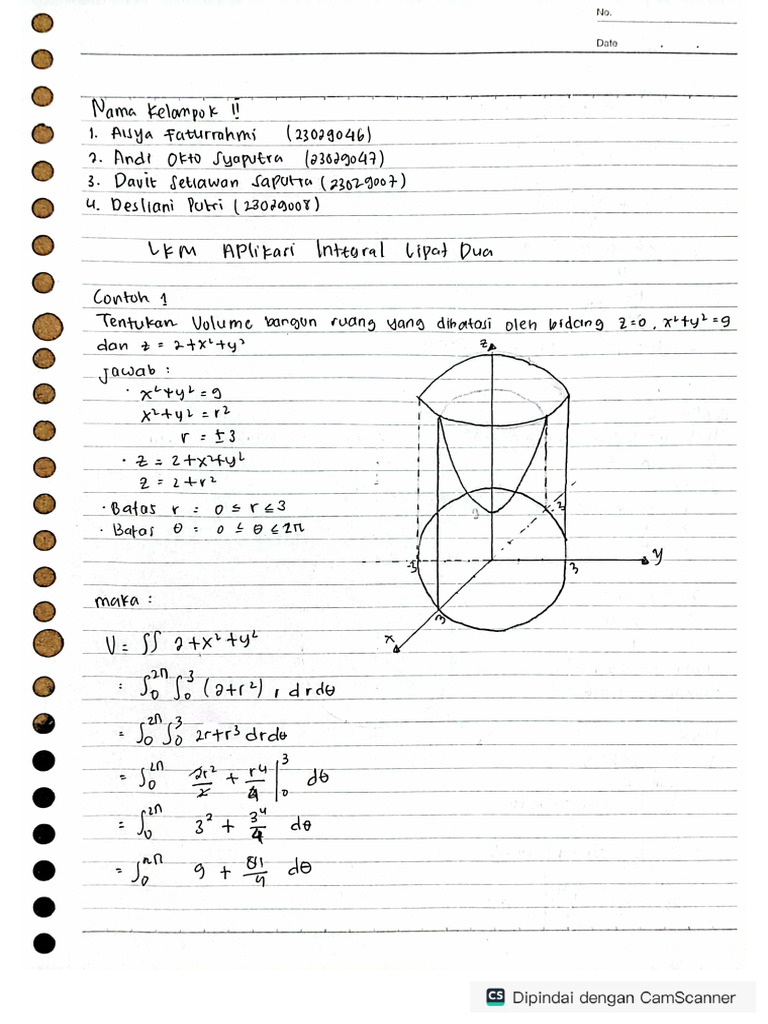 No.
Date . .
Nama Kelompok 11
1. Aisya Faturrahmi (23029046)
2. Andi Okto Syaputra (23029047)
3. Davit Setiawan Saputra (23029007)
4. Desliani Putri (23029008)
LKM Aplikasi Integral Lipat Dua
Contoh 1
Tentukan Volume bangun ruang yang dibatasi oleh bidang z=0, x²+y²=9
dan z = 2+x²+y²
Jawab :
· x²+y²=9
x²+y²=r²
r = ±3
· z = 2+x²+y²
z = 2+r²
· Batas r : 0 ≤ r ≤ 3
· Batas θ : 0 ≤ θ ≤ 2π
z
-3
3
y
3
x
maka :
V = ∬ 2+x²+y²
= ∫₀^2π ∫₀^3 (2+r²) r dr dθ
= ∫₀^2π ∫₀^3 2r+r³ dr dθ
= ∫₀^2π 2r²/2 + r⁴/4 |₀^3 dθ
= ∫₀^2π 3² + 3⁴/4 dθ
= ∫₀^2π 9 + 81/4 dθ
CS Dipindai dengan CamScanner